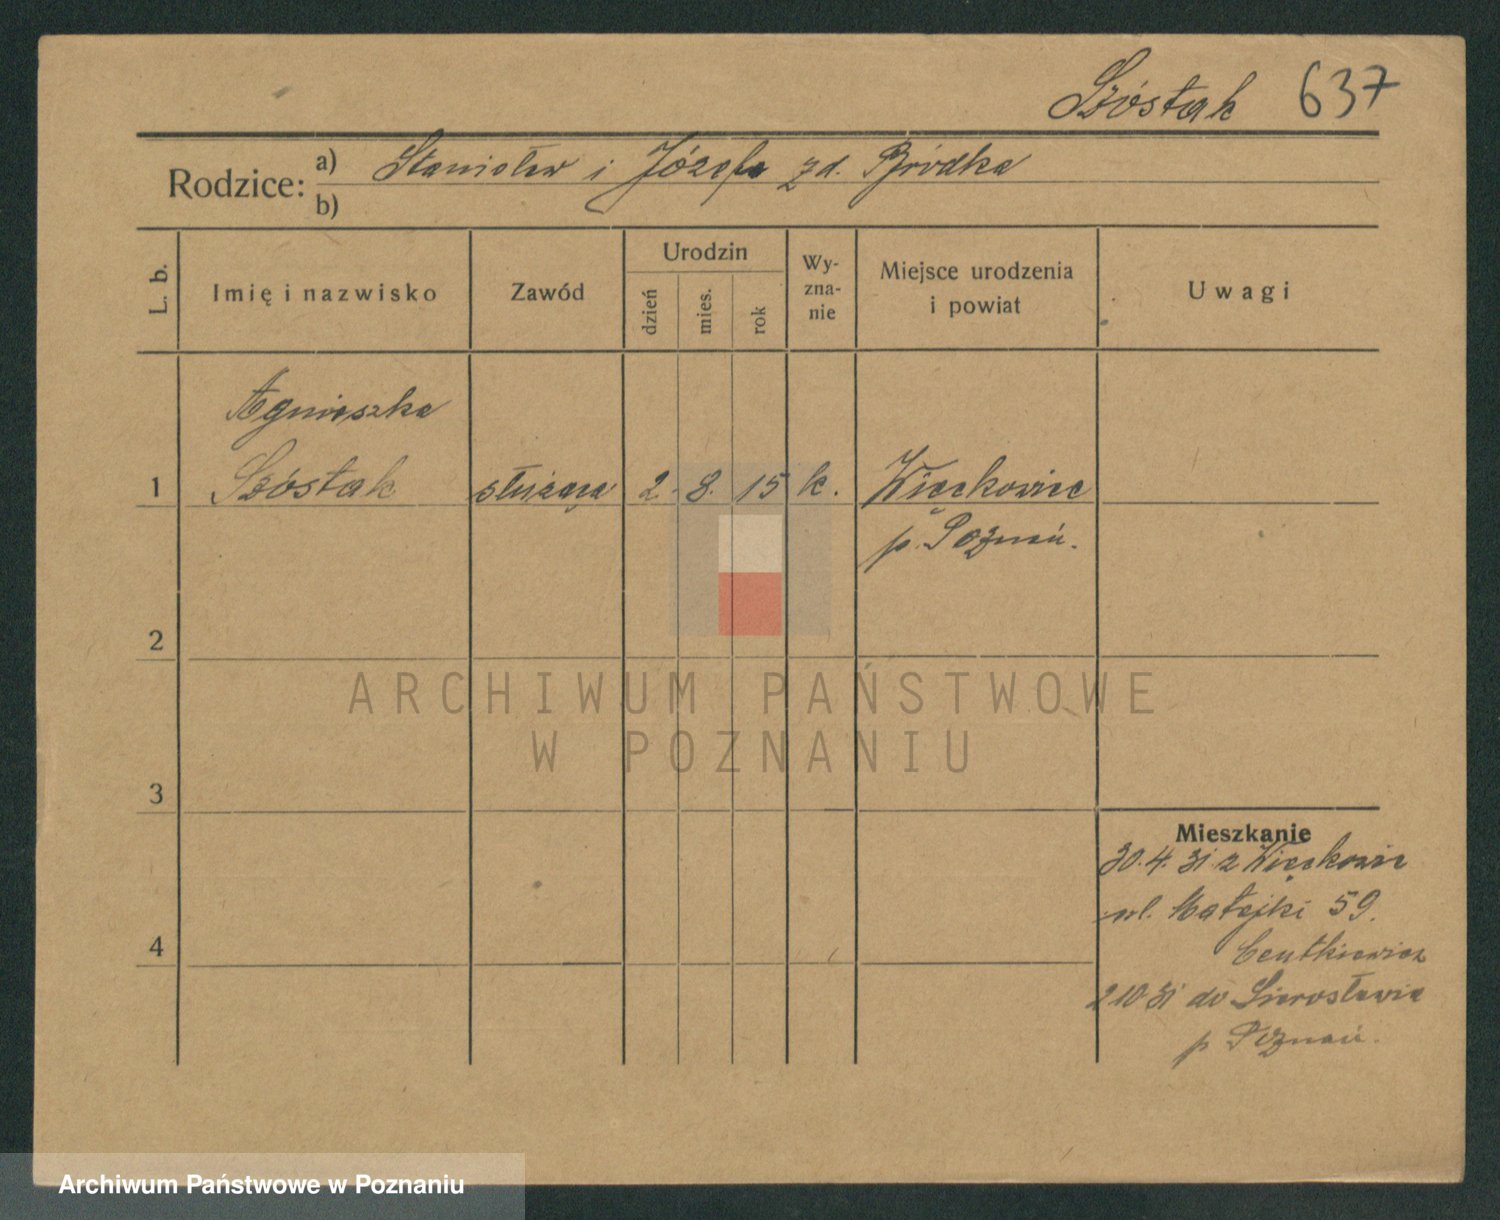 Szóstak 637
Rodzice: a) Stanisław i Józefa zd. Bródka
b)
L. b.
Imię i nazwisko
Zawód
Urodzin
dzień
mies.
rok
Wy-
zna-
nie
Miejsce urodzenia
i powiat
Uwagi
Agnieszka
1 Szóstak służąca 2. 8. 15 k. Więckowice
p. Poznań.
2
3
4
Mieszkanie
30.4.31 z Więckowic
ul. Matejki 59.
Centkiewicz
2 10 31 do Sierosławia
p Poznań.
ARCHIWUM PAŃSTWOWE
W POZNANIU
Archiwum Państwowe w Poznaniu